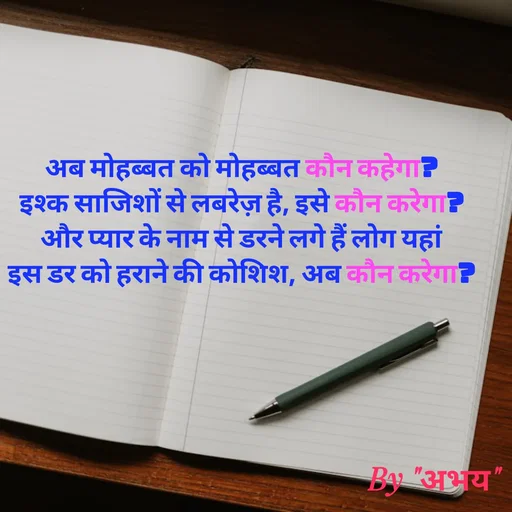 अब मोहब्बत को मोहब्बत कौन कहेगा?
इश्क साजिशों से लबरेज़ है, इसे कौन करेगा?
और प्यार के नाम से डरने लगे हैं लोग यहां
इस डर को हराने की कोशिश, अब कौन करेगा?
By "अभय"